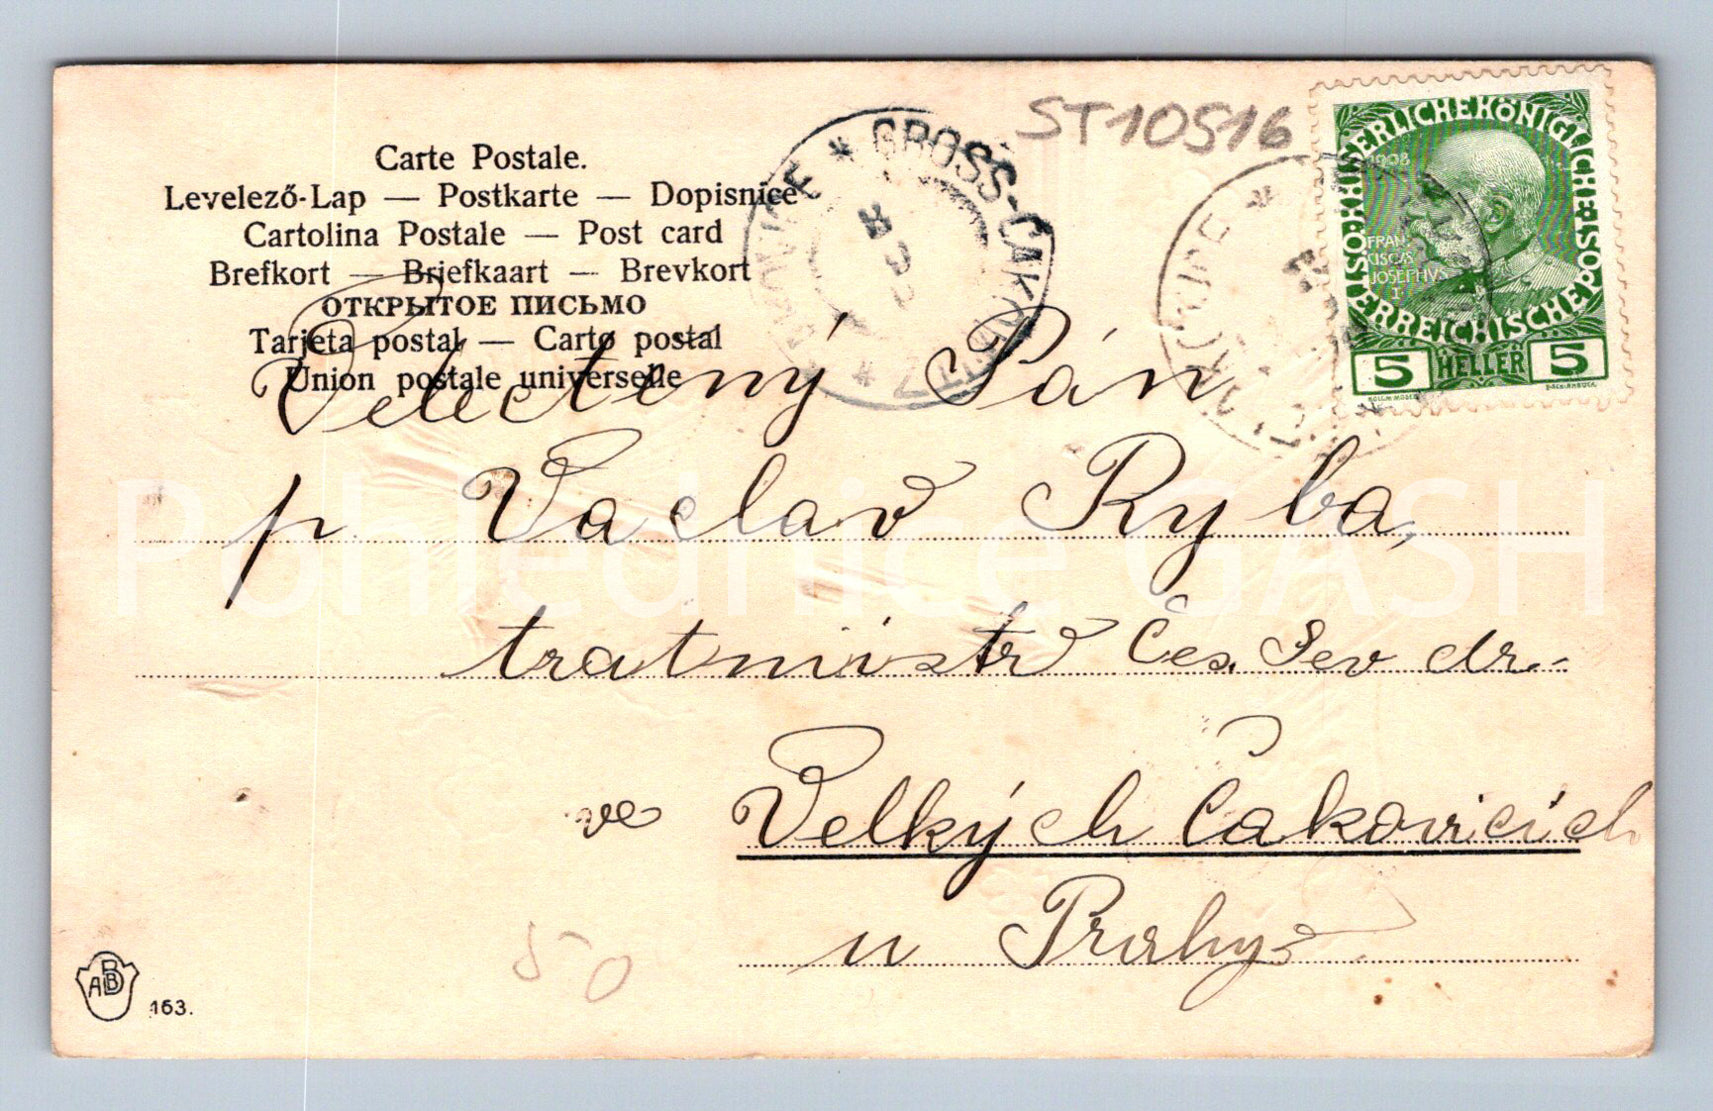 ST10516
Carte Postale.
Levelező-Lap — Postkarte — Dopisnice
Cartolina Postale — Post card
Brefkort — Briefkaart — Brevkort
ОТКРЫТОЕ ПИСЬМО
Tarjeta postal — Carto postal
Union postale universelle
* GROSS-ČAKOWITZ *
KAISERLICHE KÖNIGLICHE ÖSTERREICHISCHE POST
1908
FRAN
CISCVS
JOSEPHVS
I.
5 HELLER 5
Velectený Pán
p Vaclav Ryba,
tratmistr Čes. Sev dr.
ve Velkých Čakovicích
u Prahy
50
ABD
163.
Pohlednice GASH